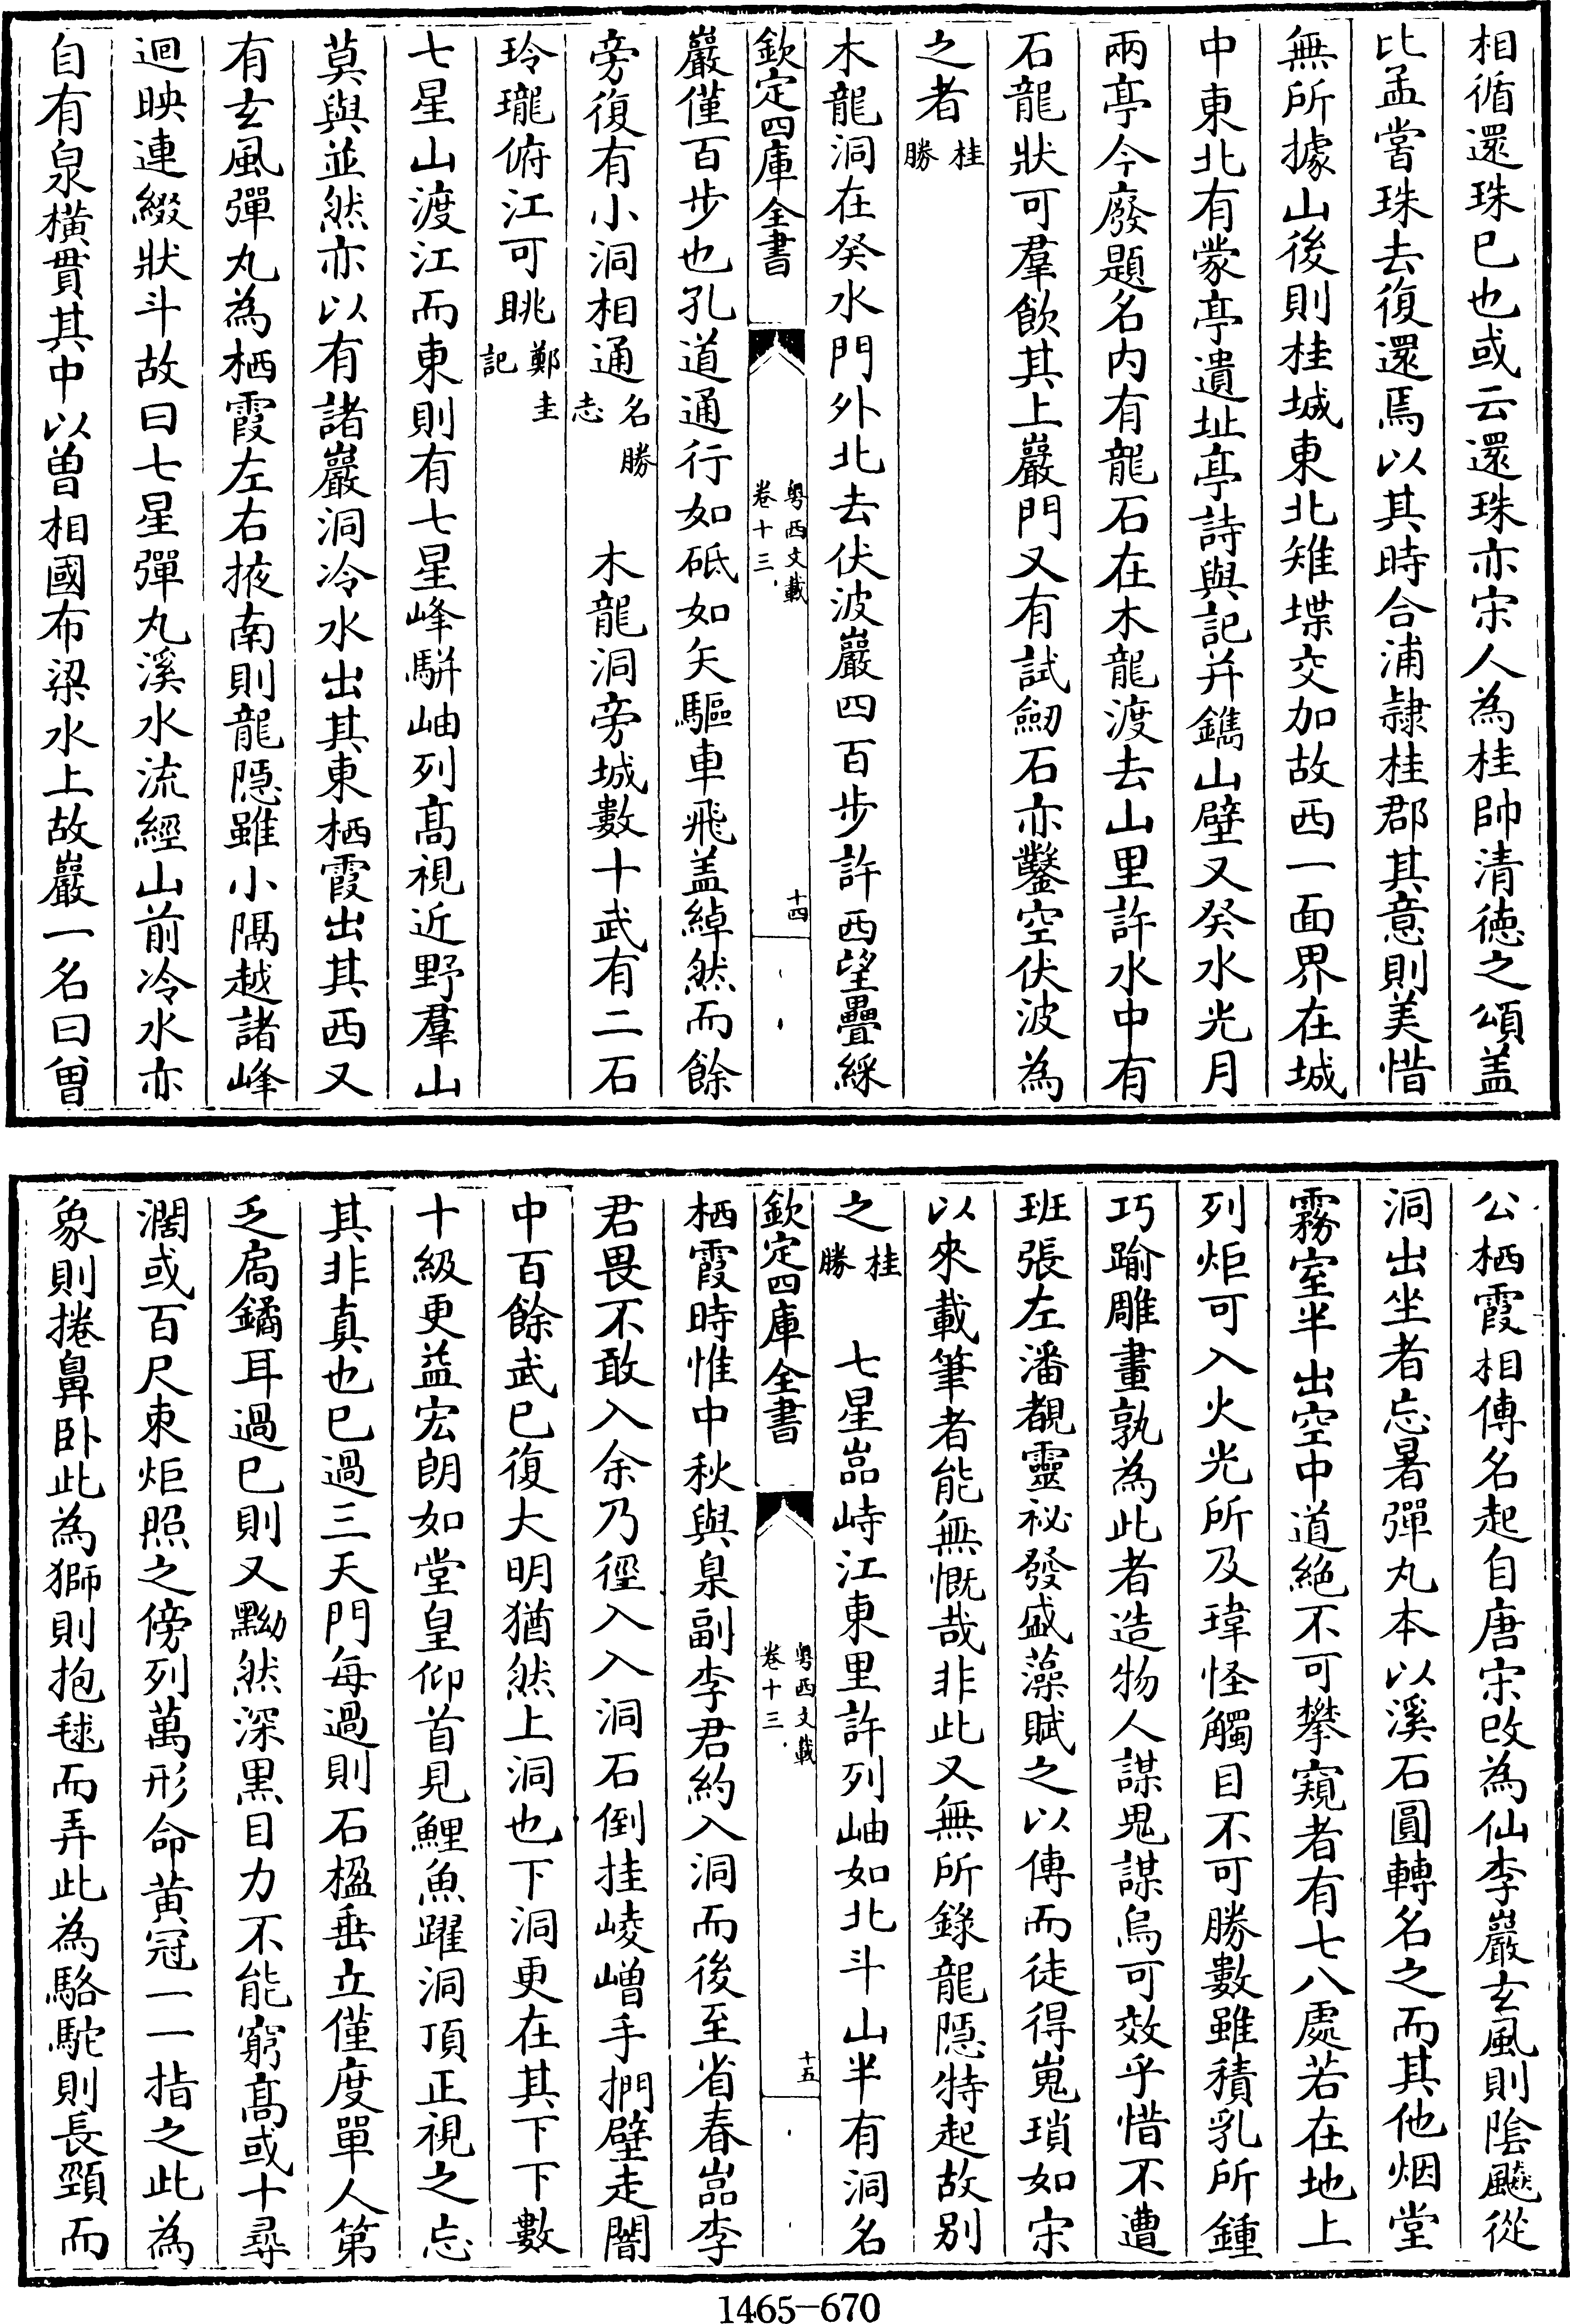 相循還珠已也或云還珠亦宋人為桂帥清徳之頌盖
比孟嘗珠去復還焉以其時合浦𨽻桂郡其意則美惜
無所據山後則桂城東北雉堞交加故西一面界在城
中東北有蒙亭遺址亭詩與記并鐫山壁又癸水光月
兩亭今廢題名内有龍石在木龍渡去山里許水中有
石龍狀可羣飲其上巖門又有試劒石亦鑿空伏波為
之者桂勝
木龍洞在癸水門外北去伏波巖四百步許西望疊綵
欽定四庫全書
粤西文載
卷十三
十四
巖僅百步也孔道通行如砥如矢驅車飛盖綽然而餘
旁復有小洞相通名勝志 木龍洞旁城數十武有二石
玲瓏俯江可眺鄭圭記
七星山渡江而東則有七星峰駢岫列髙視近野羣山
莫與並然亦以有諸巖洞冷水出其東栖霞出其西又
有玄風彈丸為栖霞左右掖南則龍隠雖小隅越諸峰
迴映連綴狀斗故曰七星彈丸溪水流經山前冷水亦
自有泉横貫其中以曽相國布梁水上故巖一名曰曽
公栖霞相傳名起自唐宋改為仙李巖玄風則陰飈從
洞出坐者忘暑彈丸本以溪石圓轉名之而其他烟堂
霧室半出空中道絶不可攀窺者有七八處若在地上
列炬可入火光所及瑋怪觸目不可勝數雖積乳所鍾
巧踰雕畫孰為此者造物人謀鬼謀烏可效乎惜不遭
班張左潘覩靈祕發盛藻賦之以傳而徒得嵬瑣如宋
以來載筆者能無慨哉非此又無所錄龍隠特起故别
之桂勝 七星嵓峙江東里許列岫如北斗山半有洞名
欽定四庫全書
粤西文載
卷十三
十五
栖霞時惟中秋與臬副李君約入洞而後至省春嵓李
君畏不敢入余乃徑入入洞石倒挂崚嶒手捫壁走闇
中百餘武已復大明猶然上洞也下洞更在其下下數
十級更益宏朗如堂皇仰首見鯉魚躍洞頂正視之忘
其非真也已過三天門每過則石楹垂立僅度單人第
乏扄鐍耳過已則又黝然深黒目力不能窮髙或十尋
濶或百尺束炬照之傍列萬形命黄冠一一指之此為
象則捲鼻卧此為獅則抱毬而弄此為駱駝則長頸而
1465-670